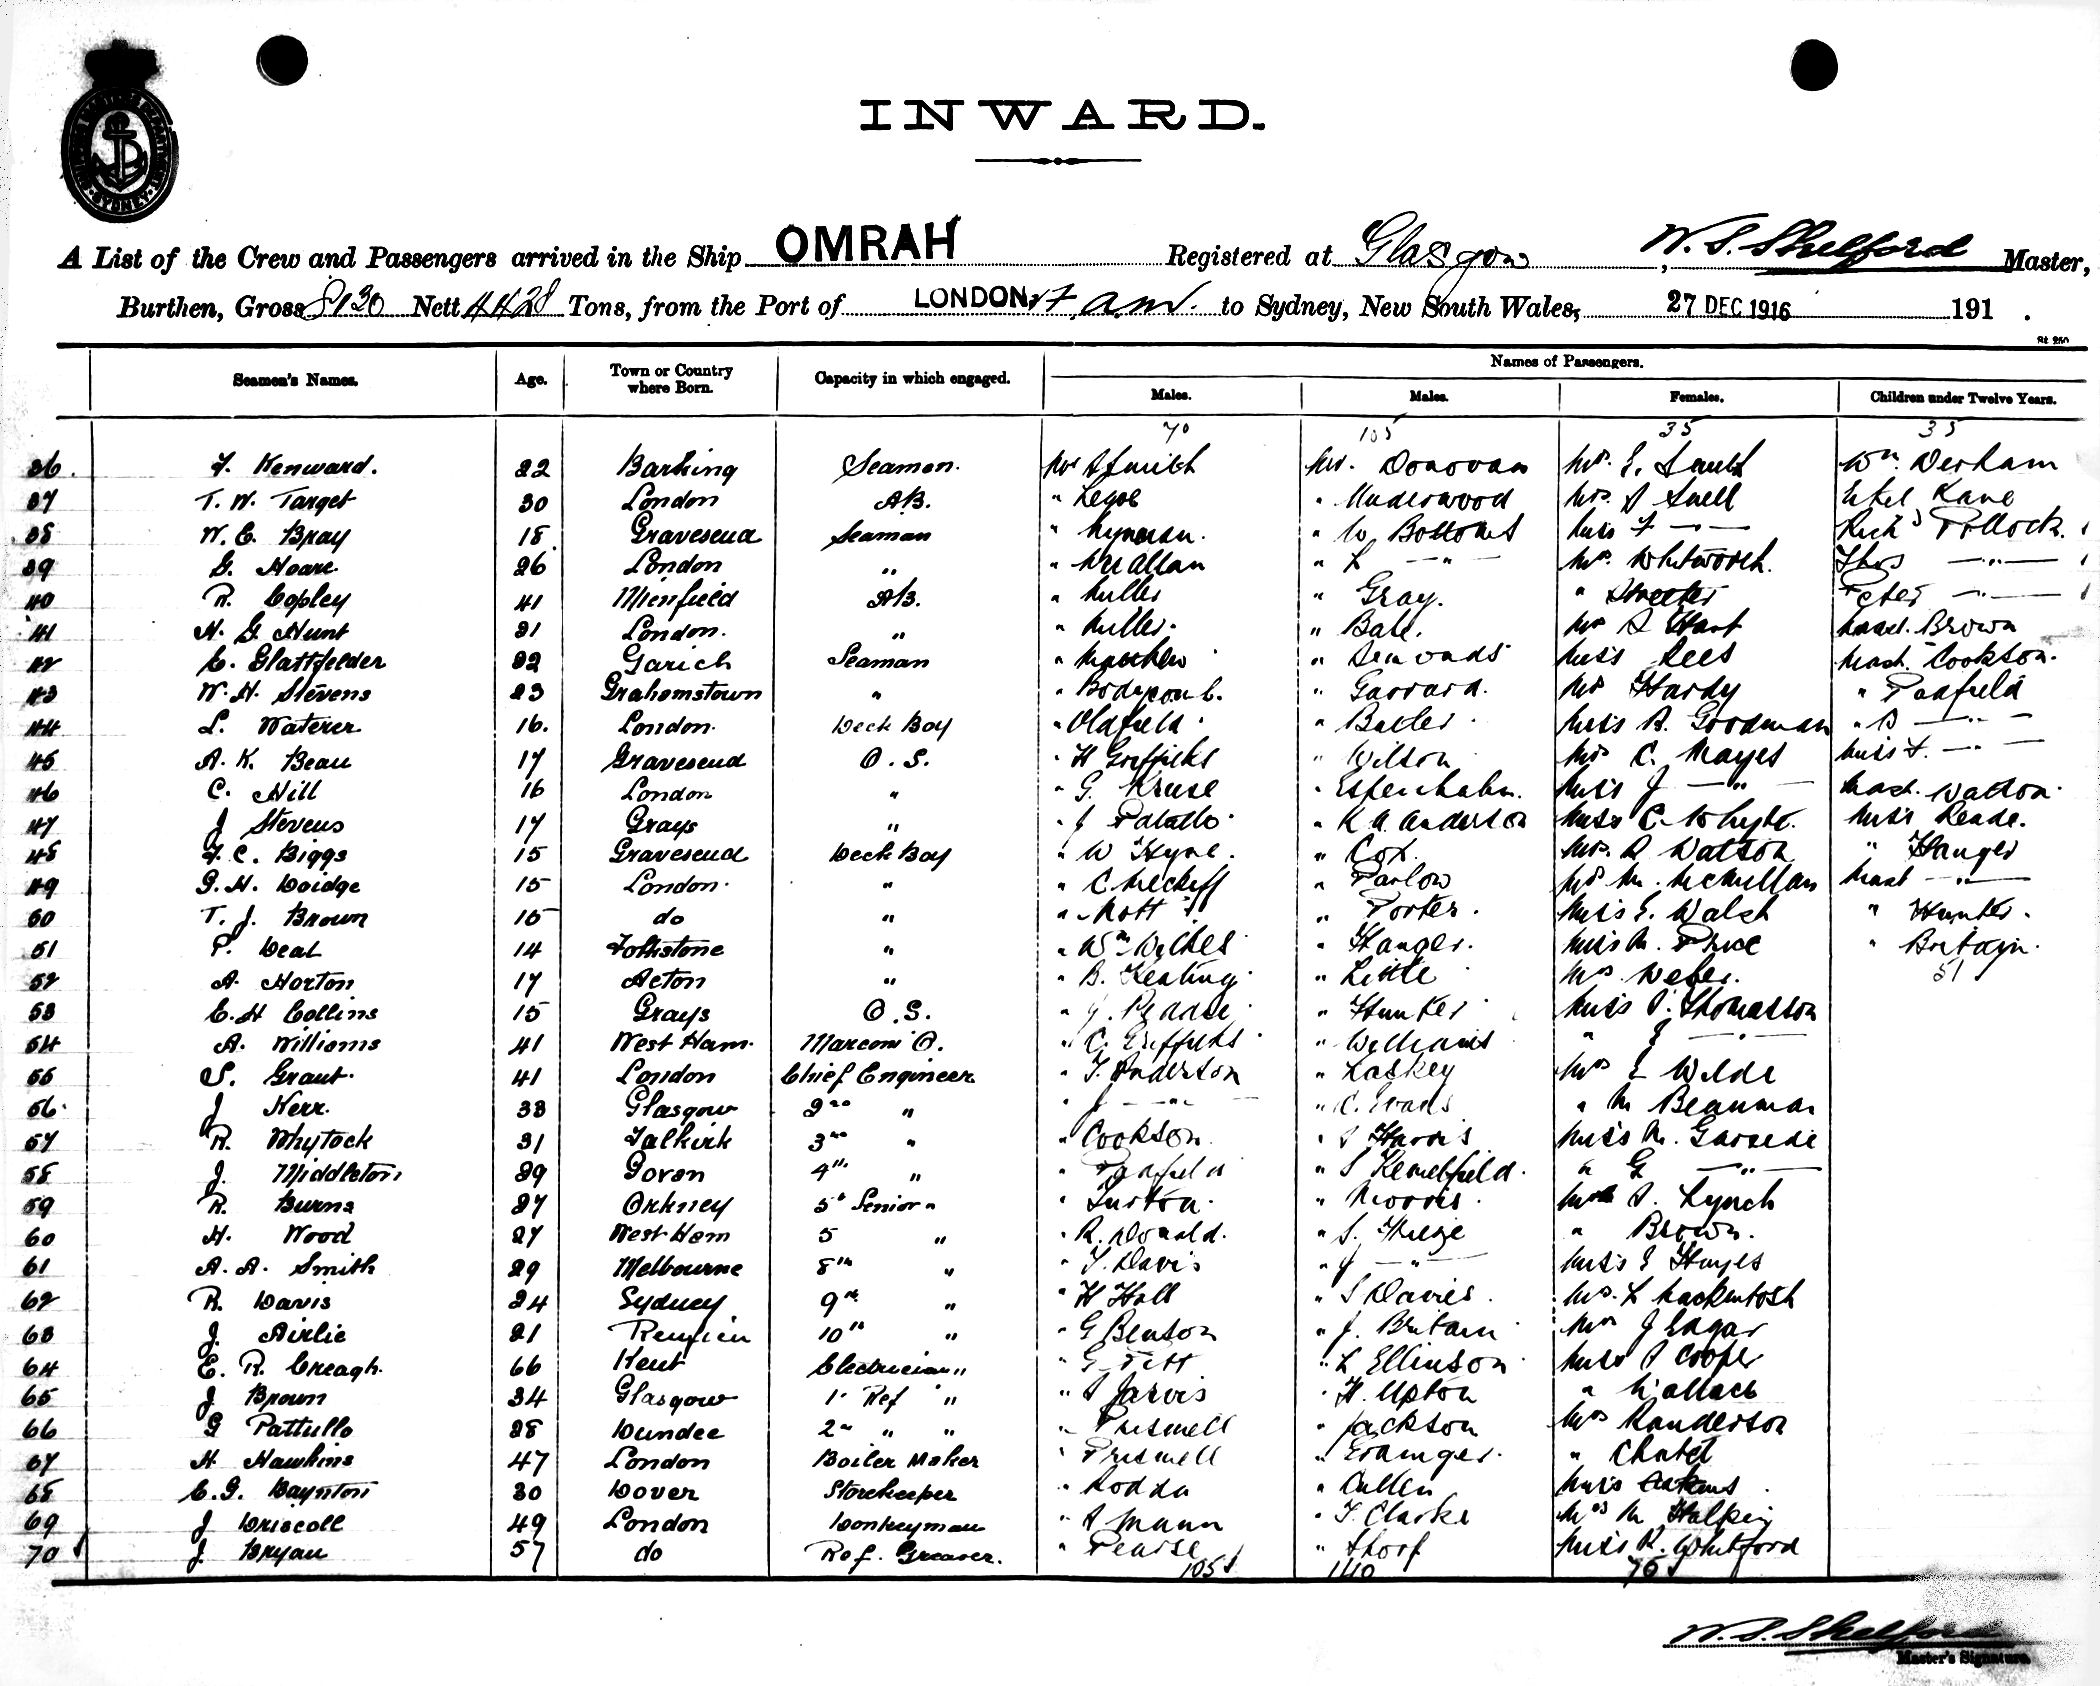 INWARD.
A List of the Crew and Passengers arrived in the Ship OMRAH Registered at Glasgow, W. S. Shelford Master,
Burthen, Gross 8130 Nett 4428 Tons, from the Port of LONDON a.m. to Sydney, New South Wales, 27 DEC 1916 191 .
Seamen's Names. Age. Town or Country where Born. Capacity in which engaged. Names of Passengers.
Males. Males. Females. Children under Twelve Years.
70 105 35 35
36. F. Kenward. 22 Barking Seaman. Mr Smith Mr. Donovan Mrs. E. Wm. Derham
37 T. W. Target 30 London A.B. " " Underwood Mrs. A Snell Ethel Kane
38 W. E. Bray 18 Gravesend Seaman " Hyman. " W Bottoms Miss F — " — Richd Pollock.
39 G. Hoare. 26 London " " McAllan " L — " — Mrs. Whitworth. Thos — " —
40 R. Copley 41 Mirfield A.B. " Miller " Gray. " Streeter Peter — " —
41 H. G Hunt 21 London. " " Miller. " Bale. Mrs A Hart Mast. Brown
42 C. Glattfelder 22 Seaman " Matthew " Simonds Miss Lees Mast. Cookson.
43 W. H. Stevens 23 Grahamstown " " Bodycomb. " Garrard. Mrs Hardy " Padfield
44 L. Waterer 16. London. Deck Boy " Oldfield " Butler Miss A. Goodman " B — " —
45 A. K. Beau 17 Gravesend O. S. " H Griffiths " Wilson Mrs C. Mayes Miss F. — " —
46 C. Hill 16 London " " G. Kruse " Espenhahn. Miss J — " — Mast. Watson.
47 J Stevens 17 Grays " " J " K A Anderson Miss C. Whyte. Miss Reade.
48 F. C. Biggs 15 Gravesend Deck Boy " W Hyne. " Cox. Mrs. A Watson " Hanger
49 G. H. Doidge 15 London. " " C. Meckiff " Parlow Mrs M. McMillan Mast — " —
50 T. J. Brown 15 do " " Mott " Porter. Miss E. Walsh " Hunter.
51 P. Deal 14 Folkstone " " Wm Wilkes " Hanger. Miss M. Price " Britain.
52 A. Horton 17 Acton " " B. Keating " Little Mrs Weber. 51
53 C. H Collins 15 Grays O. S. " J. Pearse " Hunter Miss P. Thomasson
54 A. Williams 41 West Ham. Marconi O. " C. Griffiths " Williams " E — " —
55 S. Grant. 41 London Chief Engineer " T. Anderson " Laskey Mrs E Wilde
56. J Kerr. 33 Glasgow 2nd " " J — " — " C. Evans " M Beauman
57 R. Whytock 31 Falkirk 3rd " " Cookson. " A Harris Miss M. Garsede
58 J. Middleton 29 Govan 4th " " Padfield " S Kemelfield. " G — " —
59 R. Burns 27 Orkney 5th Senior " " " Morris. Mrs A. Lynch
60 H. Wood 27 West Ham 5 " " R. Donald. " S. " Brown.
61 A. A. Smith 29 Melbourne 8th " " T. Davis " J — " — Miss E Hayes
62 R. Davis 24 Sydney 9th " " H Hall " S Davies. Mrs. L Mackintosh
63 J. Airlie 21 10th " " G Benson " J. Britain Mrs J Eagar
64 E. R. Creagh. 66 Kent Electrician " " G. Pitt " L Ellinson Miss A Cooper
65 J Brown 34 Glasgow 1st Ref " " A Jarvis " H. Upton " Wallace
66 G Pattullo 28 Dundee 2nd " " " Prismell " Jackson Mrs Randerson
67 H Hawkins 47 London Boiler Maker " Prismell " Grainger. " Chatel
68 C. G. Baynton 30 Dover Storekeeper " Rodda " Cullen Miss
69 J Driscoll 49 London Donkeyman " A Mann " T. Clarke Mrs M Halpin
70 J. Bryan 57 do Ref. Greaser. " Pearse " Thorp Miss R. Whitford
105 140 70
W. S. Shelford
Master's Signature.